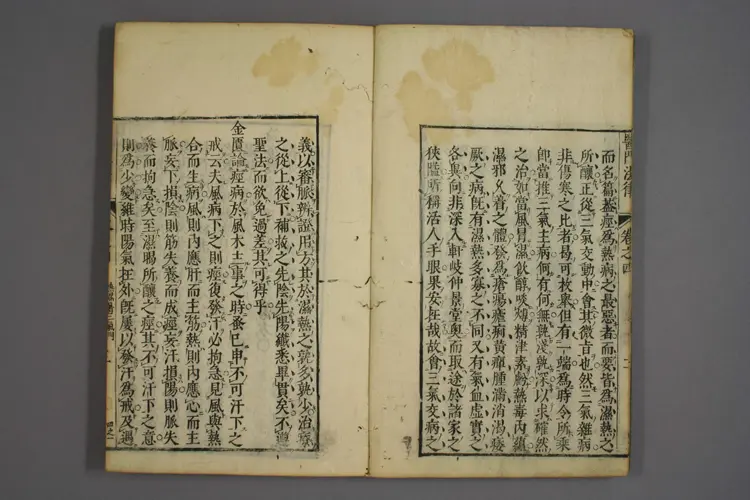 醫門法律 卷之四
而名篇蓋痙爲熱病之最惡者而要皆爲濕熱之
所釀正從三氣交動中會其微旨也然三氣雜病
非傷寒之比者曷可枚舉但有一端爲時令所乘
卽當推三氣主病何有何無孰淺孰深以求確然
之治如當風冐濕飲醇啖𤏐精津素虧熱毒內蘊
濕邪乂着之體發爲瘡瘍癥痢黃癉腫滿消渴痿
厥之病旣有濕熱多寡之不同又有氣血虛實之
各異向非深入軒岐仲景堂奧而取途於諸家之
狹隘所稱活人手眼果安在哉故會三氣交病之
義以審脈辨證用方其於濕熱之孰多孰少治療
之從上從下補救之先陰先陽纎悉畢貫矣不遵
聖法而欲免過差其可得乎
金匱論痙病於風木主事之時蚤已申不可汗下之
戒云夫風病下之則痙復發汗必拘急見風與熱
合而生病風則內應肝而主筋熱則內應心而主
脈妄下損陰則筋失養而成痙妄汗損陽則脈失
養而拘急矣至濕暍所釀之痙其不可汗下之意
則爲少變雖時陽氣在外旣屢以發汗爲戒及遇